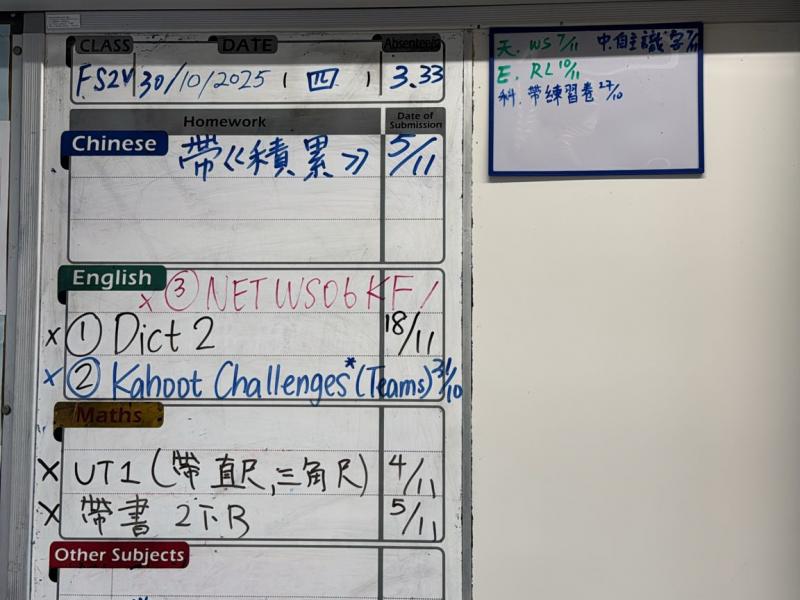 CLASS DATE Absentees
FS2V 30/10/2025 (四) 3.33
Homework Date of Submission
Chinese 帶《積累》 5/11
English
x ③ NET WS06 KF /
x ① Dict 2 18/11
x ② Kahoot Challenges* (Teams) 31/10
Maths
x UT1 (帶直尺,三角尺) 4/11
x 帶書 2下B 5/11
Other Subjects
天. WS 7/11 中.自主識字 7/11
E. RL 10/11
科. 帶練習卷 27/10